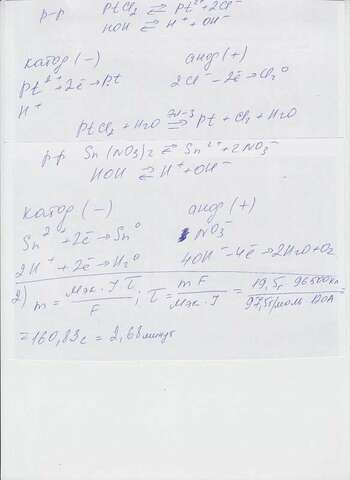 р-р PtCl₂ ⇄ Pt²⁺+2Cl⁻
HOH ⇄ H⁺ + OH⁻
катод (−) анод (+)
Pt²⁺+2ē→Pt 2Cl⁻−2ē→Cl₂⁰
H⁺
PtCl₂ + H₂O ⇒ Pt + Cl₂ + H₂O
р-р Sn(NO₃)₂ ⇄ Sn²⁺+2NO₃⁻
HOH ⇄ H⁺+OH⁻
катод (−) анод (+)
Sn²⁺+2ē→Sn⁰ NO₃⁻
2H⁺+2ē→H₂⁰ 4OH⁻−4ē→2H₂O+O₂
2) m = Mэк.·I τ / F ; τ = m F / Mэк.·I = 19,5г 96500Кл / 97,5г/моль 120А =
=160,83с = 2,68 минут